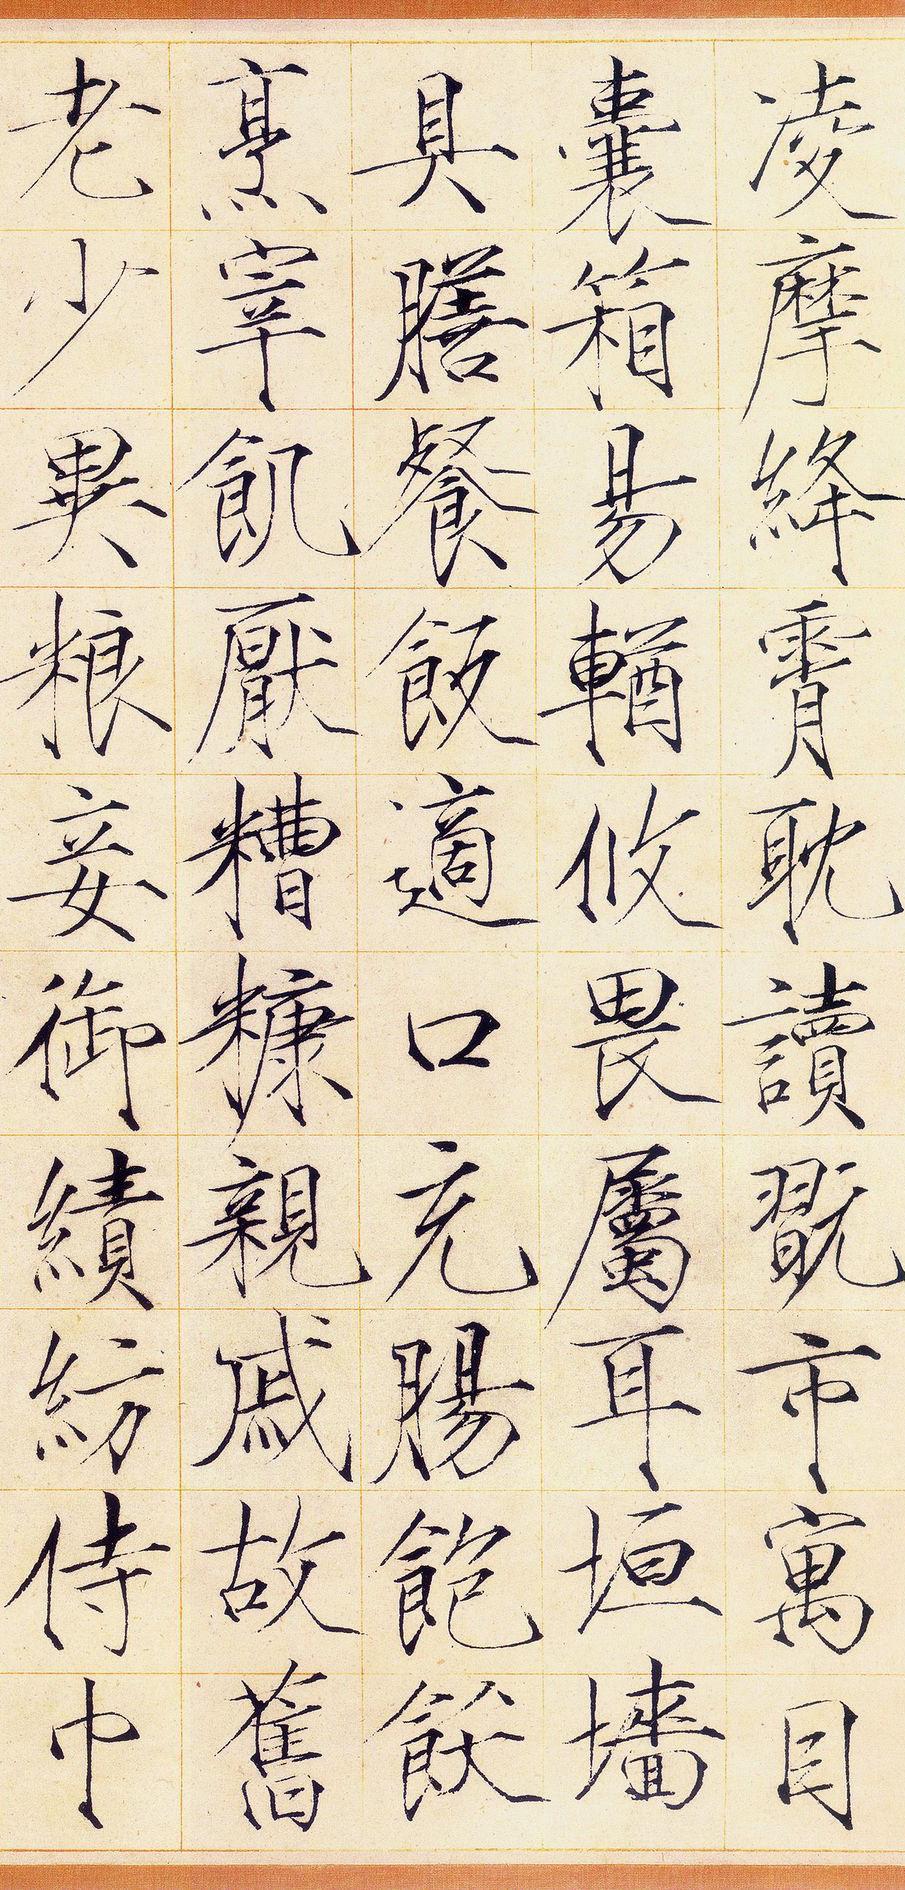 凌摩絳霄耽讀翫市寓目
囊箱易輶攸畏屬耳垣墻
具膳餐飯適口充腸飽飫
烹宰飢厭糟糠親戚故舊
老少異粮妾御績紡侍巾